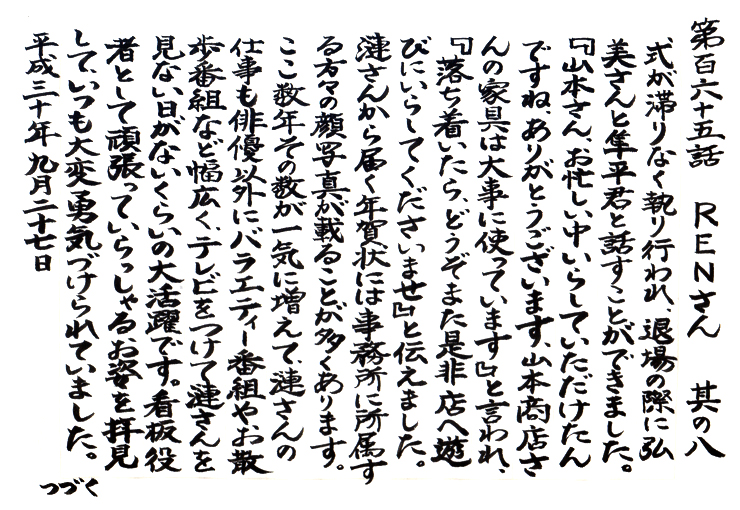 第百六十五話　RENさん　其の八
式が滞りなく執り行われ、退場の際に弘
美さんと隼平君と話すことができました。
『山本さん、お忙しい中いらしていただけたん
ですね、ありがとうございます、山本商店さ
んの家具は大事に使っています』と言われ、
『落ち着いたら、どうぞまた是非店へ遊
びにいらしてくださいませ』と伝えました。
漣さんから届く年賀状には事務所に所属す
る方々の顔写真が載ることが多くあります。
ここ数年その数が一気に増えて、漣さんの
仕事も俳優以外にバラエティー番組や、お散
歩番組など幅広く、テレビをつけて漣さんを
見ない日がないくらいの大活躍です。看板役
者として頑張っていらっしゃるお姿を拝見
して、いつも大変勇気づけられていました。
平成三十年九月二十七日
つづく